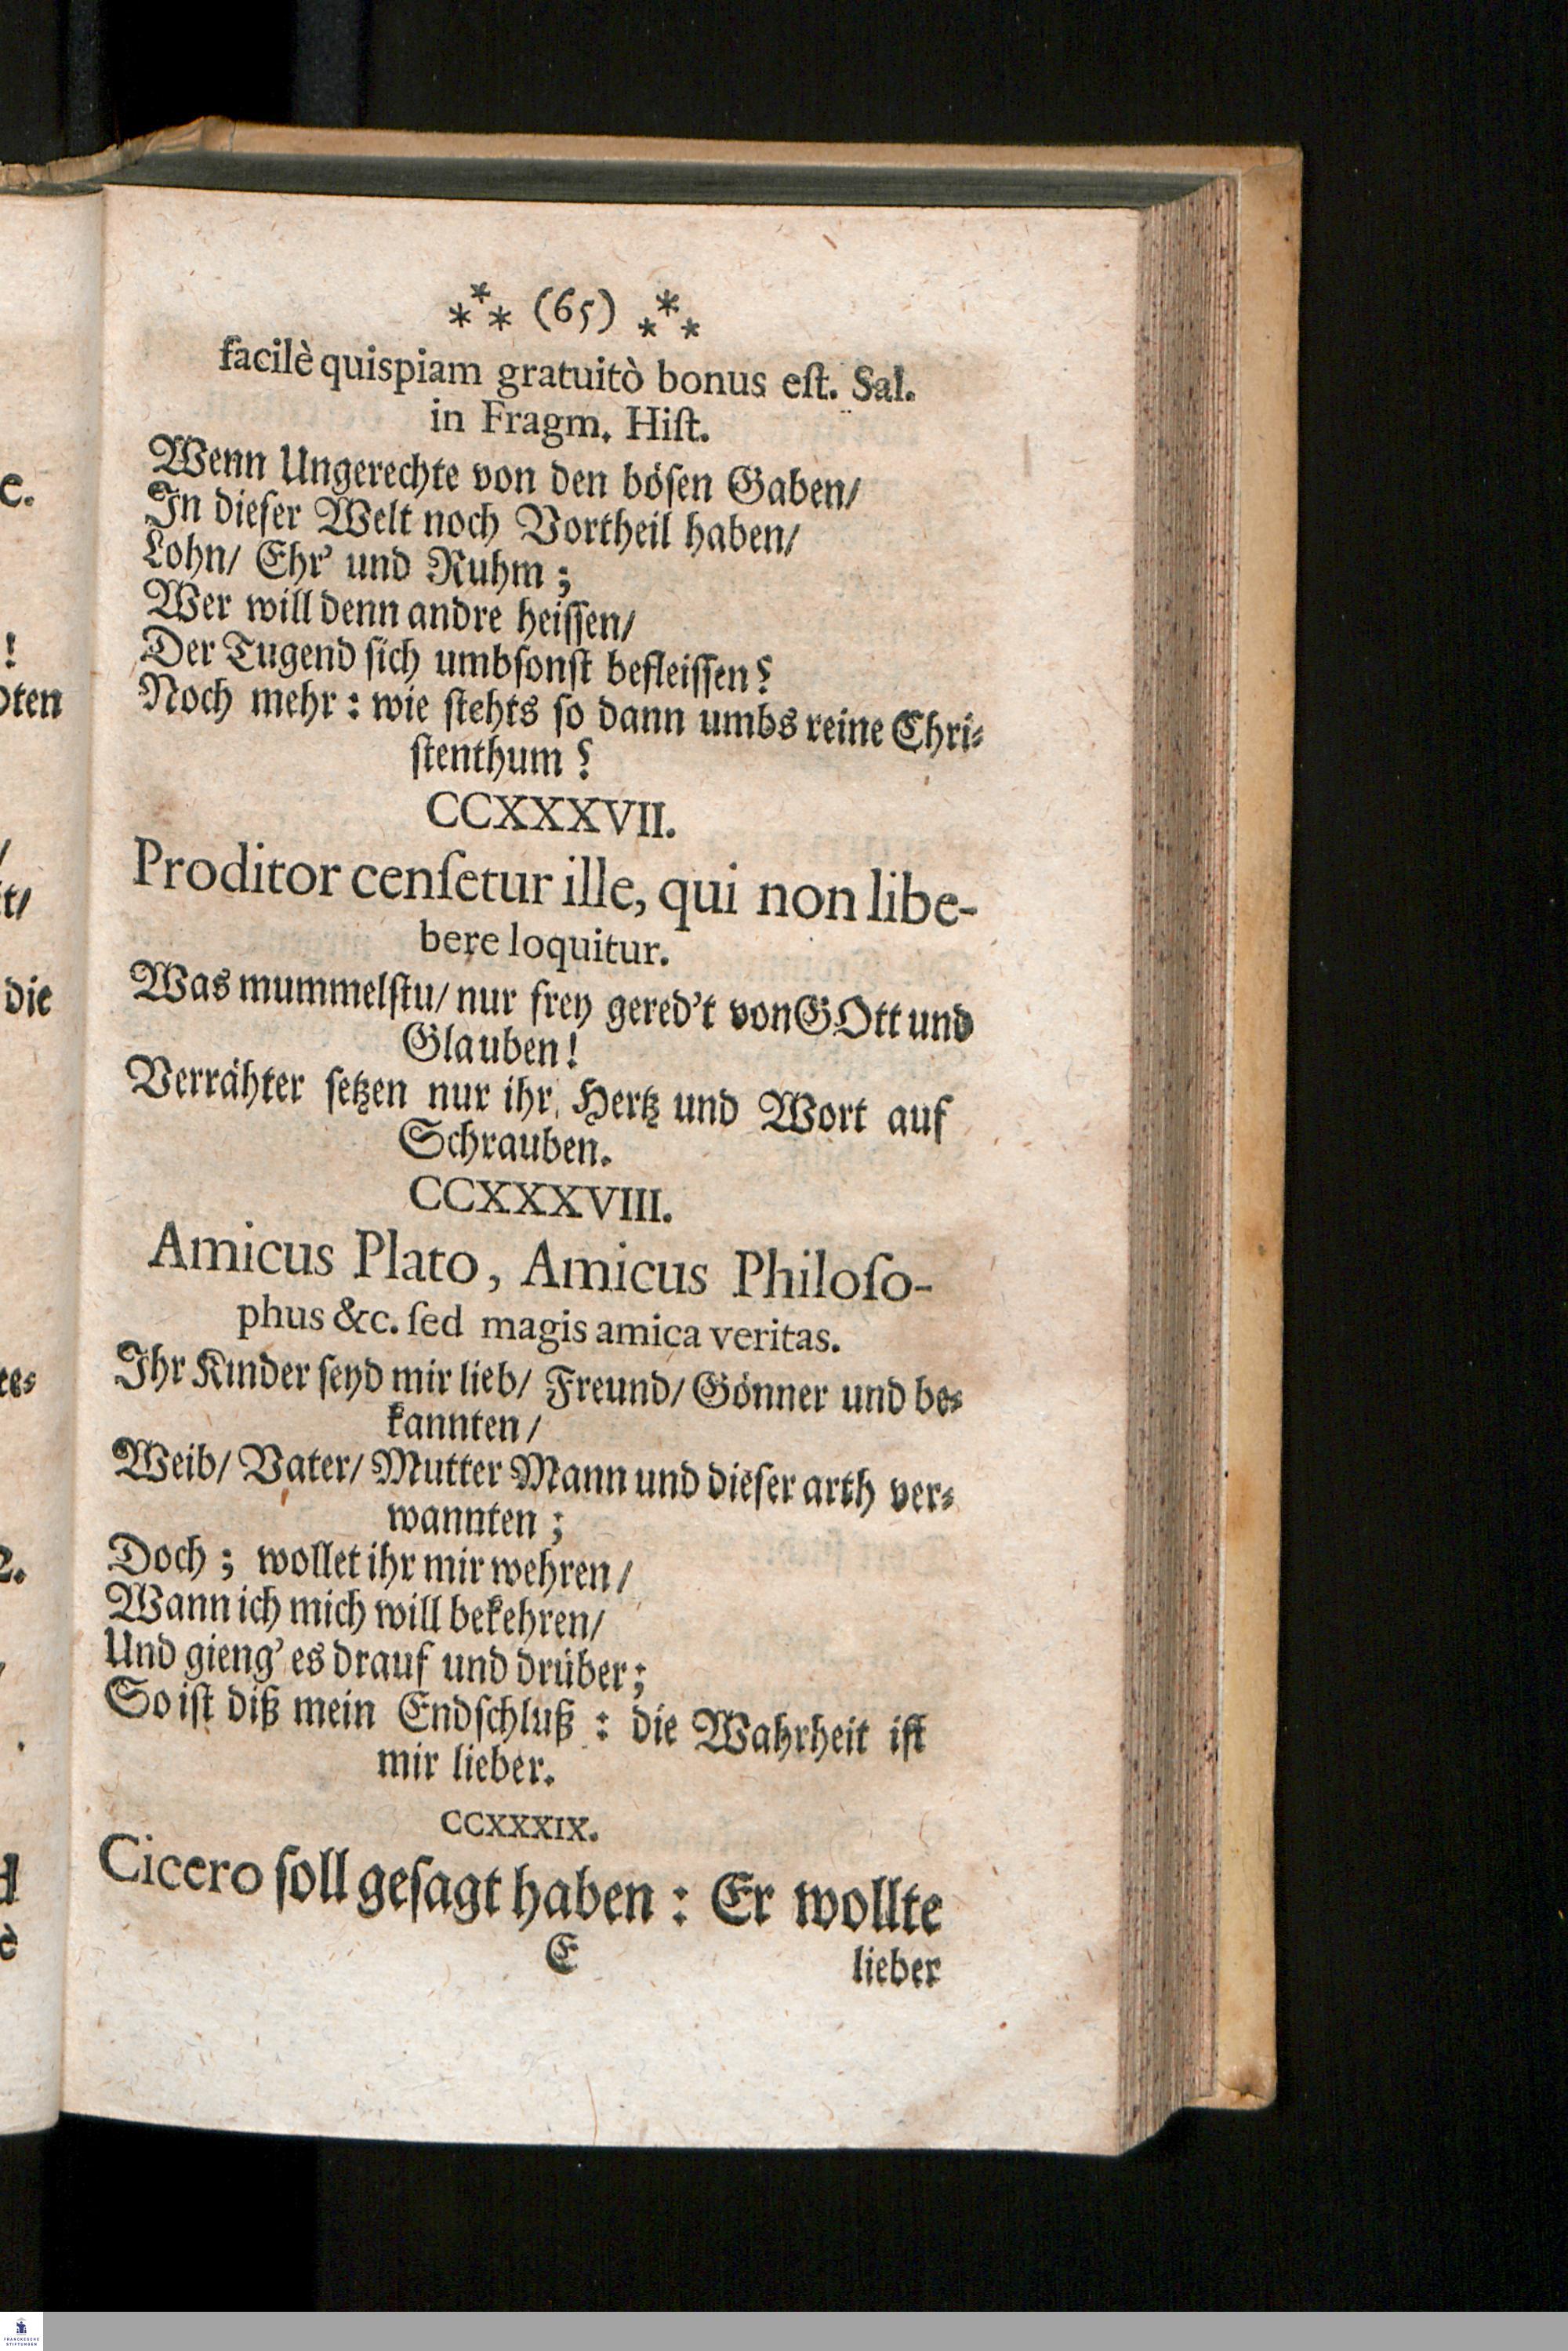 *** (65) ***
facilè quispiam gratuitò bonus eſt. Sal.
in Fragm. Hiſt.
Wenn Ungerechte von den böſen Gaben/
In dieſer Welt noch Vortheil haben/
Lohn/ Ehr' und Ruhm;
Wer will denn andre heiſſen/
Der Tugend ſich umbſonſt befleiſſen?
Noch mehr: wie ſtehts ſo dann umbs reine Chri-
ſtenthum?
CCXXXVII.
Proditor cenſetur ille, qui non libe-
bere loquitur.
Was mummelſtu/ nur frey gered't von GOtt und
Glauben!
Verrähter ſetzen nur ihr Hertz und Wort auf
Schrauben.
CCXXXVIII.
Amicus Plato, Amicus Philoſo-
phus &c. ſed magis amica veritas.
Ihr Kinder ſeyd mir lieb/ Freund/ Gönner und be-
kannten/
Weib/ Vater/ Mutter Mann und dieſer arth ver-
wannten;
Doch; wollet ihr mir wehren/
Wann ich mich will bekehren/
Und gieng' es drauf und drüber;
So iſt diß mein Endſchluß: die Wahrheit iſt
mir lieber.
CCXXXIX.
Cicero ſoll geſagt haben: Er wollte
E lieber
e.
!
oten
/
t/
die
te-
2.
.
d
è
FRANCKESCHE
STIFTUNGEN